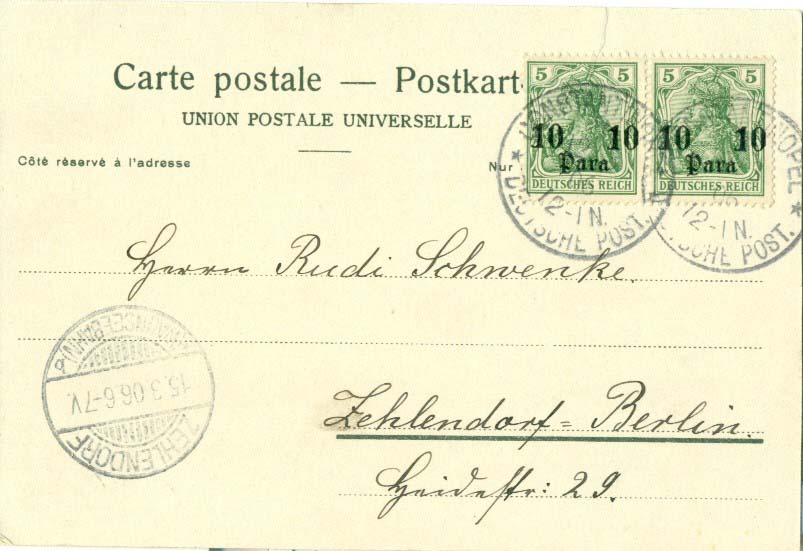 Carte postale — Postkart
UNION POSTALE UNIVERSELLE
Côté réservé à l'adresse
Nur
5 5
10 10
Para
DEUTSCHES REICH
5 5
10 10
Para
DEUTSCHES REICH
12-1N.
DEUTSCHE POST.
12-1N.
DEUTSCHE POST.
Herrn Rudi Schwenke.
15.3.06.6-7V.
ZEHLENDORF
Zehlendorf=Berlin.
Heidestr: 29.